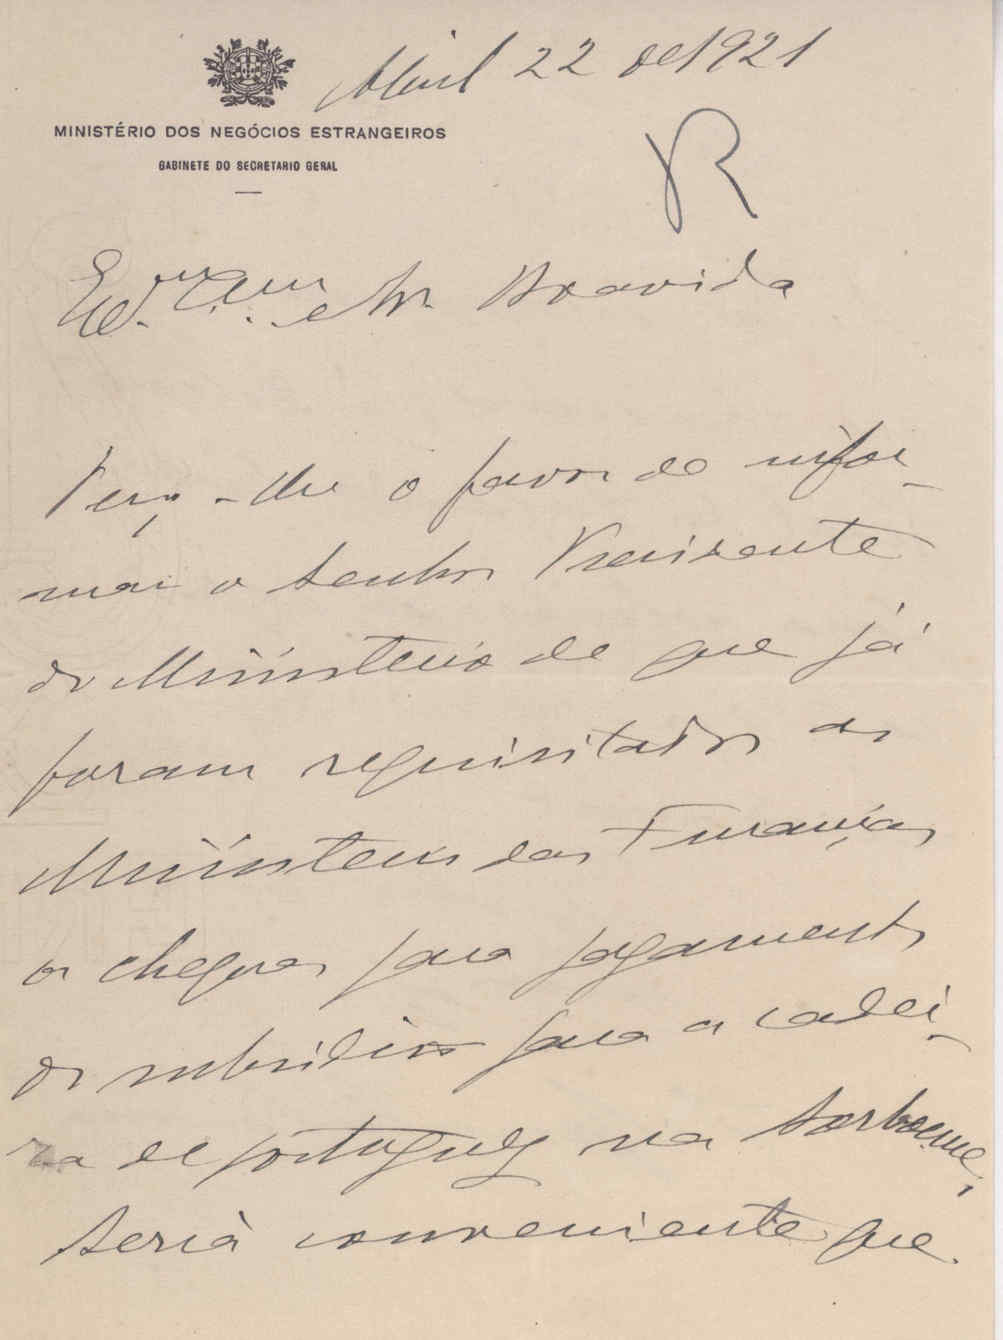 Abril 22 de 1921
MINISTÉRIO DOS NEGÓCIOS ESTRANGEIROS
GABINETE DO SECRETARIO GERAL
R
Ex.mo Sr.
Peço-lhe o favor de infor-
mar o Senhor Presidente
do Ministerio de que já
foram requisitados ao
Ministerio das Finanças
os cheques para pagamento
do subsidio para a cadei-
ra de portuguez na Sorbonne,
Seria conveniente que